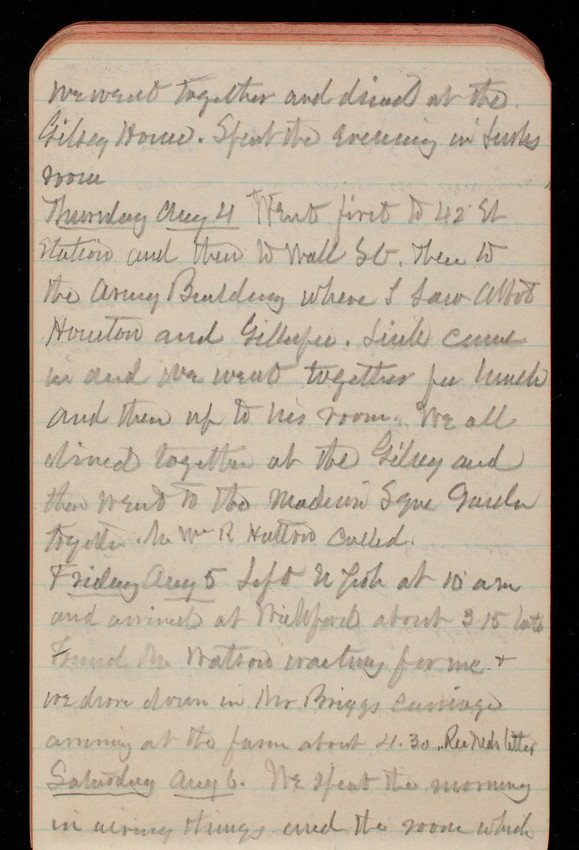 We went together and dined at the
Gilsey House. Spent the evening in Lusks
room
Thursday Aug 4 Went first to 42 St
Station and then to Wall St. Then to
the Army Building where I saw Abbot
Houston and Gillespie. Link came
in and we went together for lunch
and then up to his room. We all
dined together at the Gilsey and
then went to the Madison Sque Garden
together. Mr Wm R Hutton called.
Friday Aug 5 Left N York at 10 am
and arrived at Wickford about 3.15 late
Found Mr Watson waiting for me +
we drove down in Mr Briggs carriage
arriving at the farm about 4.30. Rec Neds letter
Saturday Aug 6. We spent the morning
in airing things and the room which